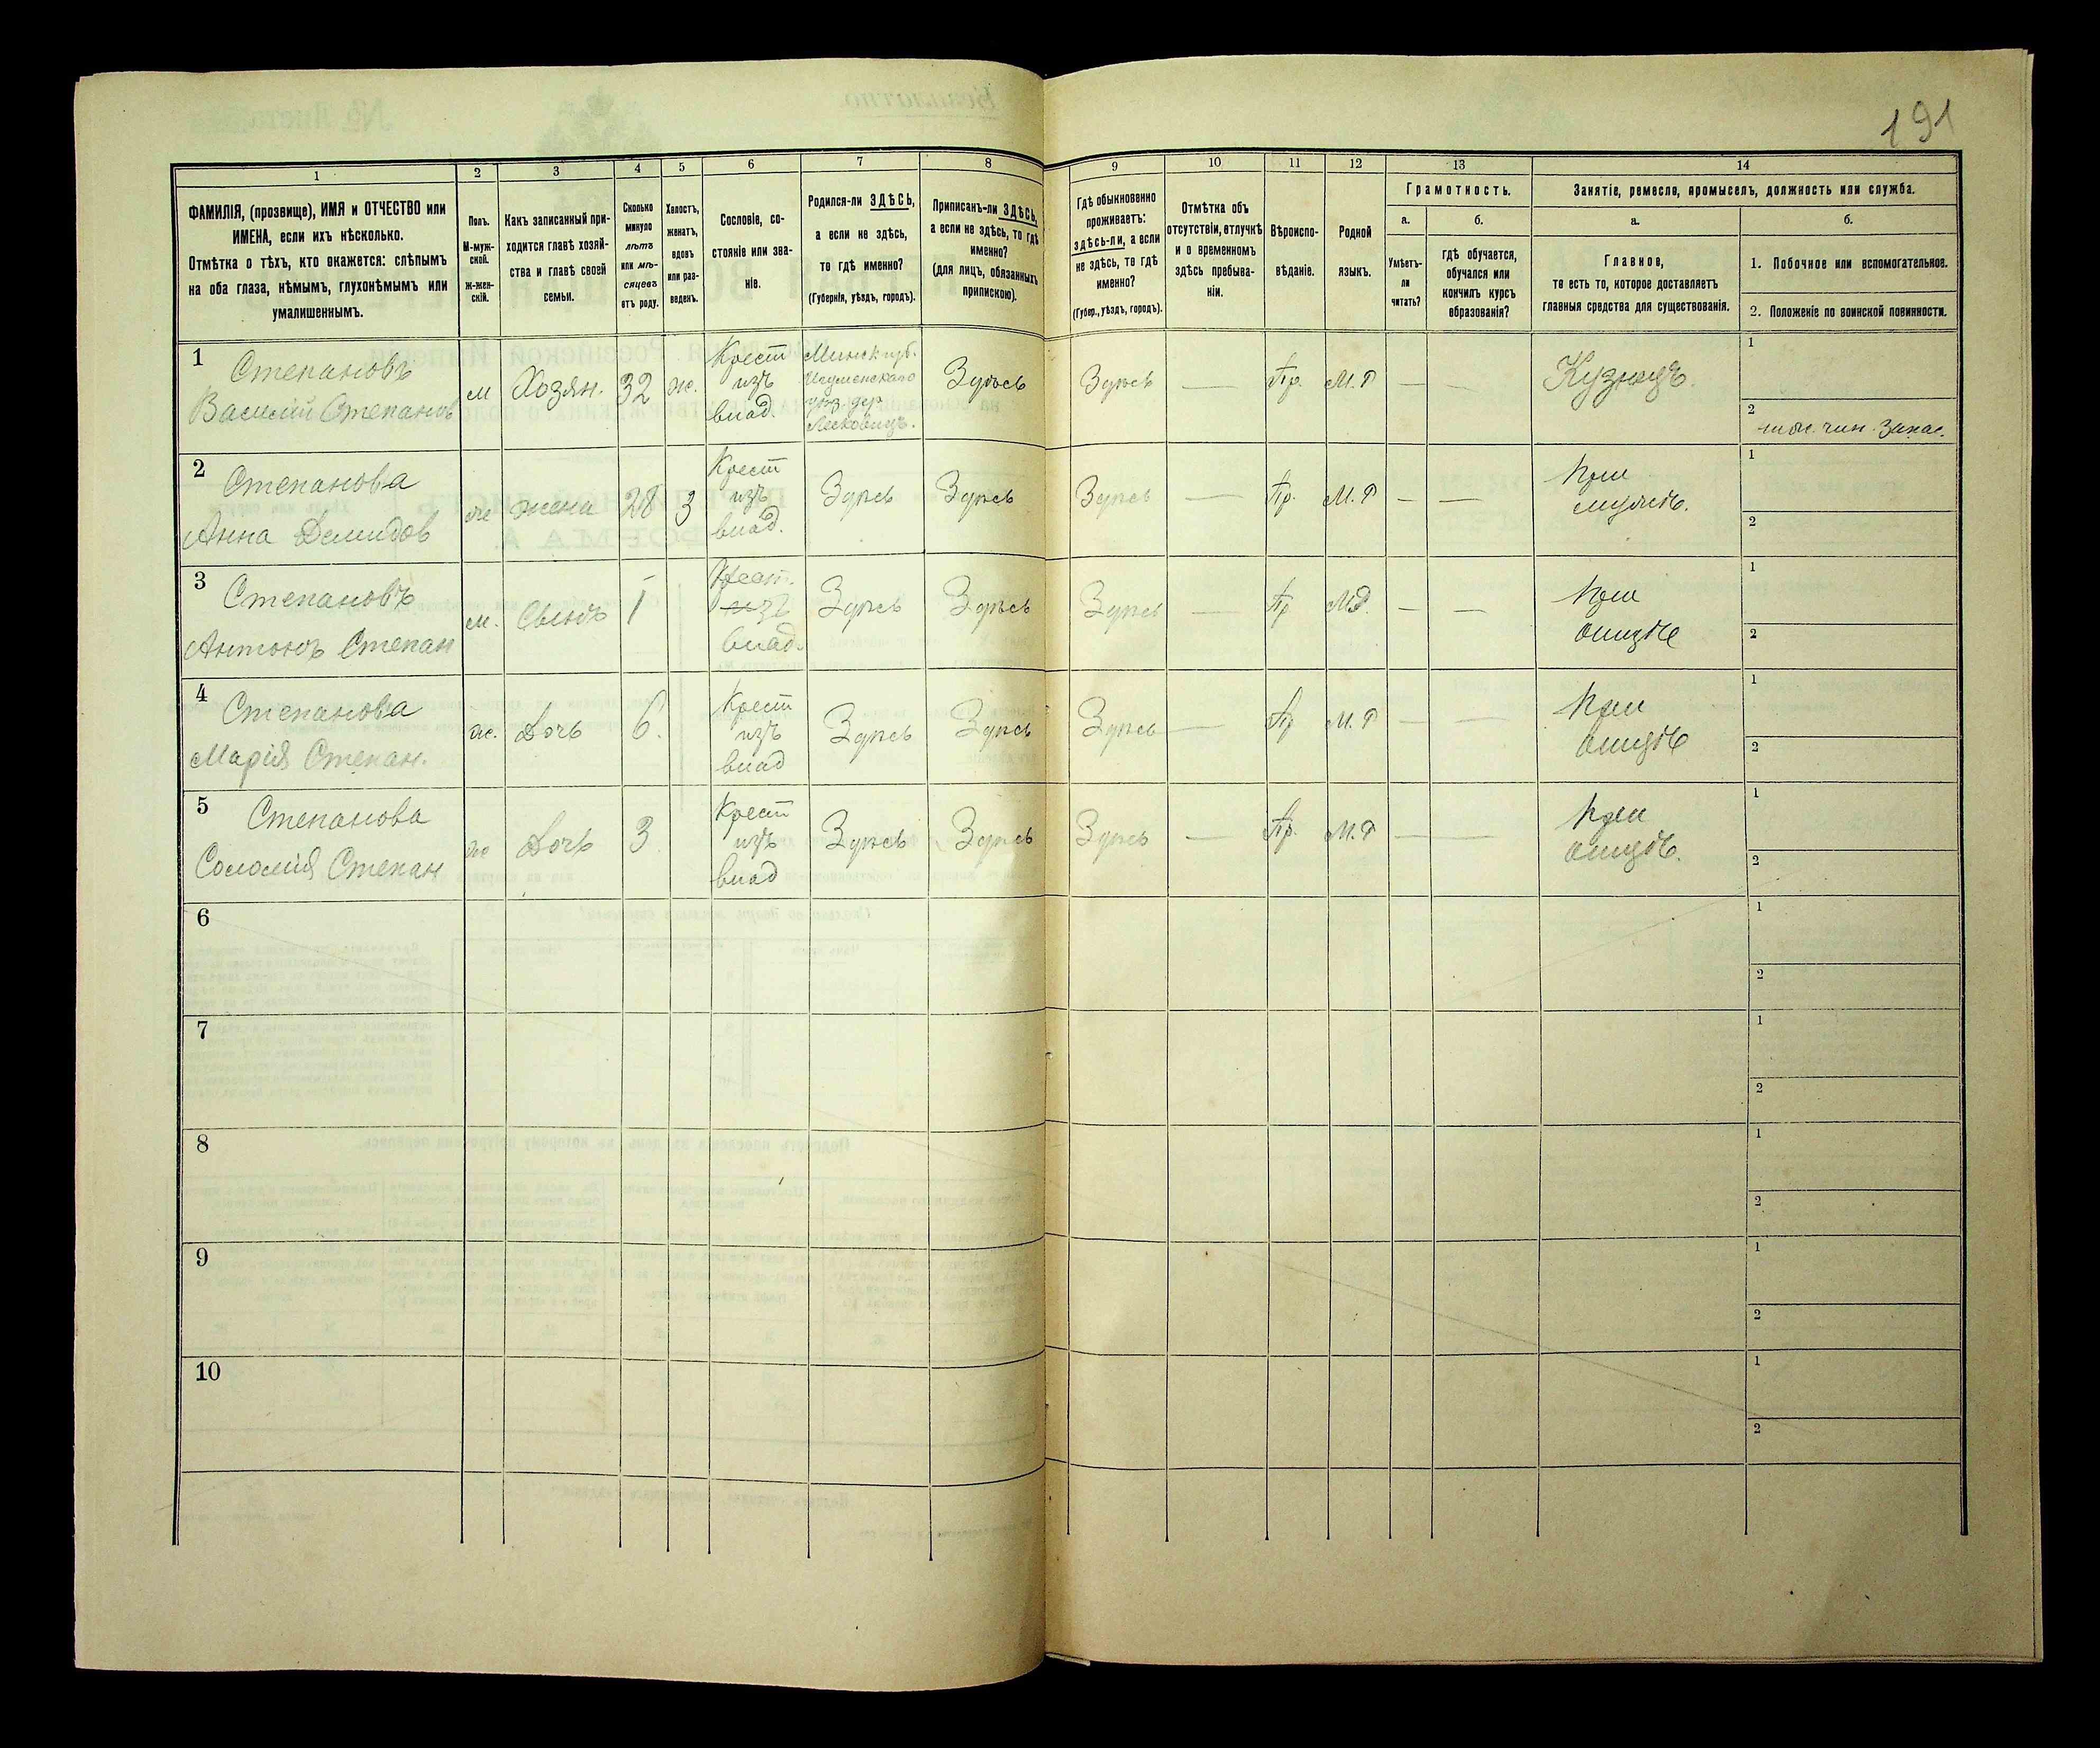 191
1 2 3 4 5 6 7 8 9 10 11 12 13 14
ФАМИЛІЯ, (прозвище), ИМЯ и ОТЧЕСТВО или
ИМЕНА, если ихъ нѣсколько.
Отмѣтка о тѣхъ, кто окажется: слѣпымъ
на оба глаза, нѣмымъ, глухонѣмымъ или
умалишеннымъ.
Полъ.
М-муж-
ской.
ж-жен-
скій.
Какъ записанный при-
ходится главѣ хозяй-
ства и главѣ своей
семьи.
Сколько
минуло
лѣтъ
или мѣ-
сяцевъ
отъ роду.
Холостъ,
женатъ,
вдовъ
или раз-
веденъ.
Сословіе, со-
стояніе или зва-
ніе.
Родился-ли ЗДѢСЬ,
а если не здѣсь,
то гдѣ именно?
(Губернія, уѣздъ, городъ).
Приписанъ-ли ЗДѢСЬ,
а если не здѣсь, то гдѣ
именно?
(для лицъ, обязанныхъ
припискою).
Гдѣ обыкновенно
проживаетъ:
здѣсь-ли, а если
не здѣсь, то гдѣ
именно?
(Губер., уѣздъ, городъ).
Отмѣтка объ
отсутствіи, отлучкѣ
и о временномъ
здѣсь пребыва-
ніи.
Вѣроиспо-
вѣданіе.
Родной
языкъ.
Грамотность.
а.
Умѣетъ-
ли
читать?
б.
гдѣ обучается,
обучался или
кончилъ курсъ
образованія?
Занятіе, ремесло, промыселъ, должность или служба.
а.
Главное,
то есть то, которое доставляетъ
главныя средства для существованія.
б.
1. Побочное или вспомогательное.
2. Положеніе по воинской повинности.
1
Степановъ
Василій Степанов
м
Хозян.
32
ж.
Крест
изъ
влад.
Минск губ.
Игуменскаго
уѣз. дер
Лесковицъ.
Здѣсь
Здѣсь
—
Пр.
М. Р
—
—
Кузнецъ.
1
2
ниж. чин. запас.
2
Степанова
Анна Демидов
ж
жена
28
З
Крест
изъ
влад.
Здѣсь
Здѣсь
Здѣсь
—
Пр.
М. Р
—
—
При
мужѣ.
1
2
3
Степановъ
Антонъ Степан
м.
Сынъ
1
Крест.
изъ
влад.
Здѣсь
Здѣсь
Здѣсь
—
Пр
М.Р.
—
—
При
отцѣ
1
2
4
Степанова
Марія Степан.
ж.
Дочь
6.
Крест
изъ
влад
Здѣсь
Здѣсь
Здѣсь
—
Пр
М. Р
—
—
При
отцѣ
1
2
5
Степанова
Соломія Степан
ж
Дочь
3
Крест
изъ
влад
Здѣсь
Здѣсь
Здѣсь
—
Пр.
М. Р
—
—
При
отцѣ.
1
2
6
1
2
7
1
2
8
1
2
9
1
2
10
1
2